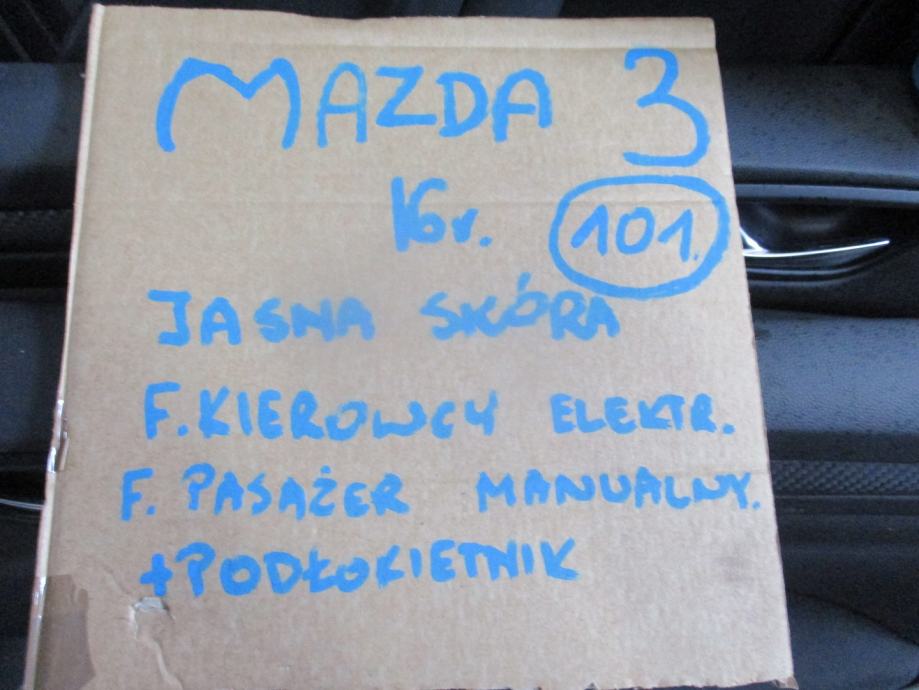 MAZDA 3
16r. 101.
JASNA SKÓRA
F. KIEROWCY ELEKTR.
F. PASAŻER MANUALNY.
+PODŁOKIETNIK